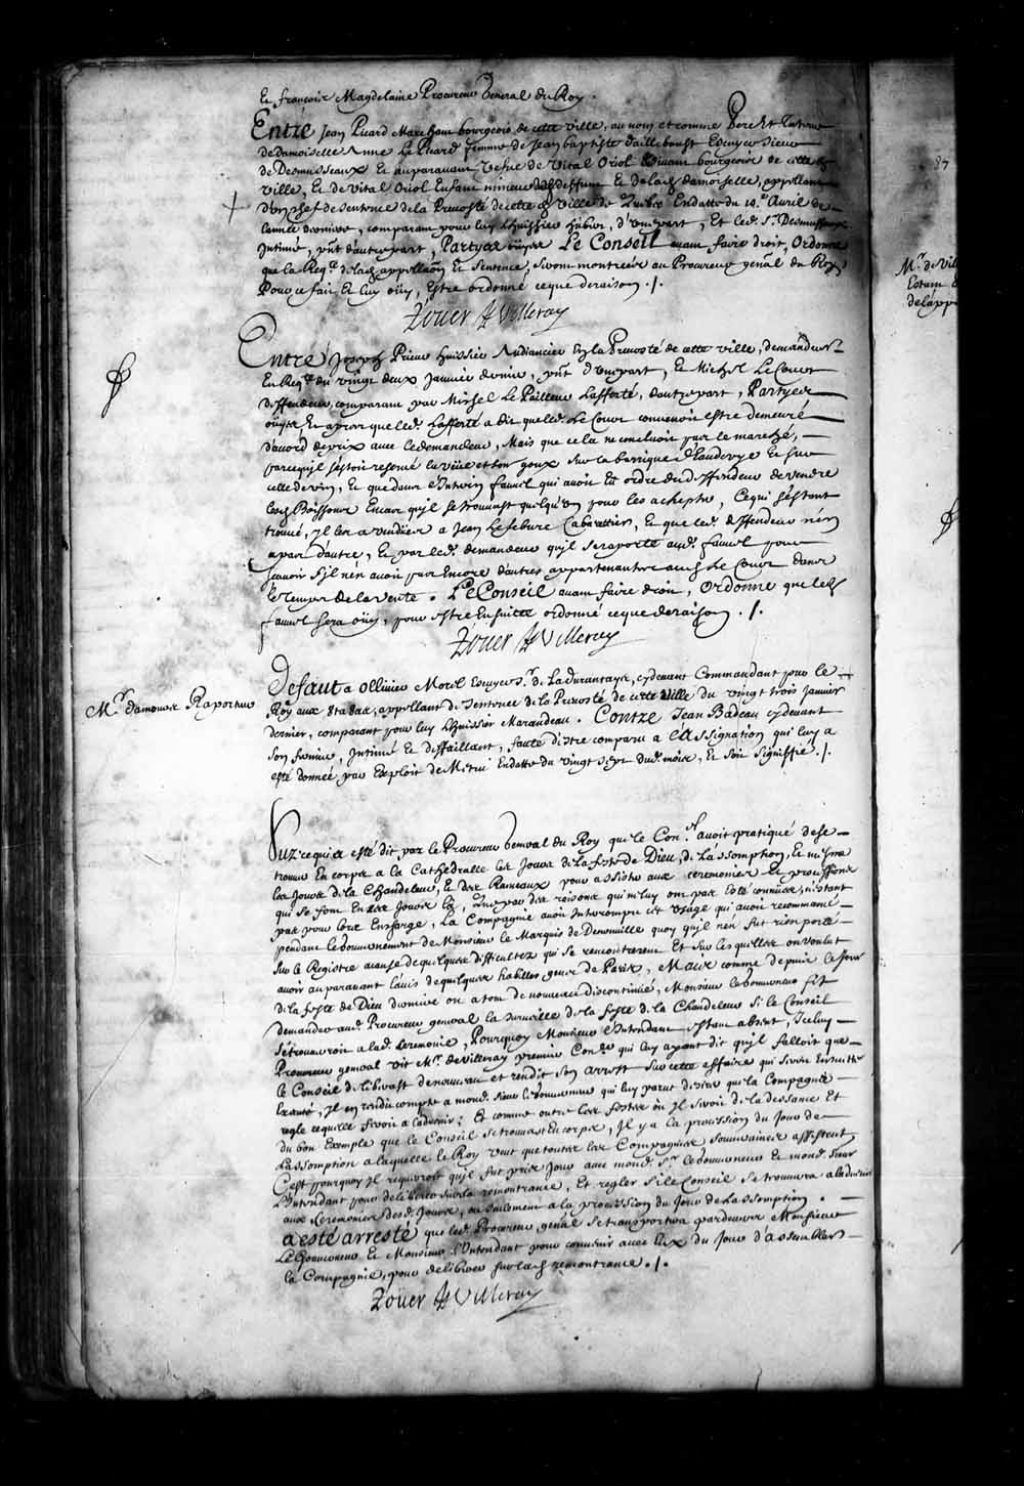 Et françois Magdelaine Procureur General du Roy.
Entre Jean Picard Marchant bourgeois de cette ville, au nom et comme Pere et Tuteur
de Damoiselle Anne Le Picard femme de Jean baptiste Dailleboust Escuyer Sieur
de Desmusseaux Et auparavant Vefue de Vital Oriol Viuant bourgeois de cette
ville, Et de Vital Oriol Enfant mineur deffunt Et de lad. damoiselle, appellant
d'un chef de sentence de la Preuosté de cette ville de Quebec En datte du Avril de
l'année derniere, comparant pour luy l'huissier hubert, d'une part, Et led. Sr. Desmusseaux
Intimé, pnt d'autre part, Partyes oüyes Le Conseil auant faire droit, Ordonne
que la Reqte. de lad. appellaõn Et Sentence, seront montrées au Procureur genãl du Roy,
Pour ce fait, Et luy oüy, Estre ordonné ce que de raison ./.
Roüer de Villeray
Entre Joseph Prieur huissier Audiancier En la Preuosté de cette ville, demandeur
En Reqte. du vingt deux Januier dernier, pnt d'une part, Et Michel Le Couvr
deffendeur, comparant par Michel Le Pailleur Lafferté, d'autre part, Partyes
oüyes Et apres que led. Lafferté a dit que led. Le Cour conuenoit estre demeuré
d'acord de prix auec le demandeur, Mais que cela ne concluoit pas le marché, —
parcequ'il s'estoit reserué la vüe et son goux sur la barrique d'Eaudevye Et sur
celle de vin, Et que dans l'Intervin fauuel qui auoit Eû ordre du deffendeur de vendre
lesd. Boissons En cas qu'il se trouuast quelqu'un pour les achepter, Ce qui s'estant
trouué, jl les a vendües a Jean Lefebure Cabarettier, Et que led. deffendeur n'en
a pas d'autre, Et par led. demandeur qu'il se raporte aud. fauuel pour
scauoir s'il n'en auoit pas Encore d'autres appartenantes aud. Le Cour dans
le temps de la vente. Le Conseil auant faire droit, Ordonne que led.
fauuel sera oüy, pour Estre Ensuitte ordonné ce que de raison ./.
Roüer de Villeray
Mr. Damours Raporteur
Defaut a Ollivier Morel Escuyer Sr. de Ladurantaye, cydeuant Commandant pour le
Roy aux 8ta8ax, appellant de sentence de la Preuosté de cette Ville du vingt trois Januier
dernier, comparant pour luy l'huissier Marandeau. Contre Jean Badeau cydeuant
son fermier, Intimé Et deffaillant, faute d'Estre comparu a l'Assignation qui luy a
esté donnée par Exploit de Metru En datte du vingt sept dud. mois, Et soit signiffié ./.
Sur ce qui a esté dit par le Procureur General du Roy que le Conel. auoit pratiqué de se —
trouuer En corps a la Cathedralle les Jours de la feste de Dieu, de L'assomption, Et mesme
les Jours de la Chandeleur, Et des Rameaux pour assister aux ceremonies Et processions
qui se font En ces Jours là, Que par des raisons qui ne luy ont pas Esté connües, n'estant
pas pour lors En charge, La Compagnie auoit Interrompu cet Vsage qui auoit recommencé
pendant le Gouuernement de Monsieur le Marquis de Denonuille quoy qu'il n'en fut rien porté
sur le Registre a cause de quelques difficultez qui se rencontrerent Et sur lesquelles on voulut
auoir auparauant l'auis de quelques habilles gens de Paris, Mais comme depuis le Jour
de la feste de Dieu derniere on a tout de nouueau discontinué, Monsieur le Gouuerneur fit
demander aud. Procureur general la surueille de la feste de la Chandeleur si le Conseil
se trouueroit a lad. Ceremonie, Pourquoy Monsieur l'Intendant estant absent, Iceluy —
Procureur general vit Mr. de Villeray premier Conser. qui luy ayant dit qu'il falloit que
le Conseil deliberast de nouueau et rendit son arrest sur cette affaire qui seroit Ensuitte
Executé, jl en rendit compte a mond. sieur le Gouuerneur qui luy parut desirer que la Compagnie
regle ce qu'elle feroit a l'aduenir: Et comme outre les festes où jl seroit de la dessance Et
du bon Exemple que le Conseil se trouuast En corps, jl y a la procession du Jour de
L'assomption a laquelle le Roy veut que toutes les Compagnies souueraines assistent
C'est pourquoy jl requeroit qu'il fut pris Jour auec mond. Sr. le Gouuerneur Et mond. sieur
L'Intendant pour deliberer sur la remontrance, Et regler si le Conseil se trouuera a l'aduenir
aux Ceremonies desd. Jours, ou seulement a la procession du Jour de L'assomption. —
a esté arresté que led. Procureur genãl se transportera pardeuers Monsieur
Le Gouuerneur Et Monsieur l'Intendant pour conuenir auec Eux du Jour d'assembler
la Compagnie, pour deliberer sur lad. remontrance ./.
Roüer de Villeray
87
Mr. de Vill